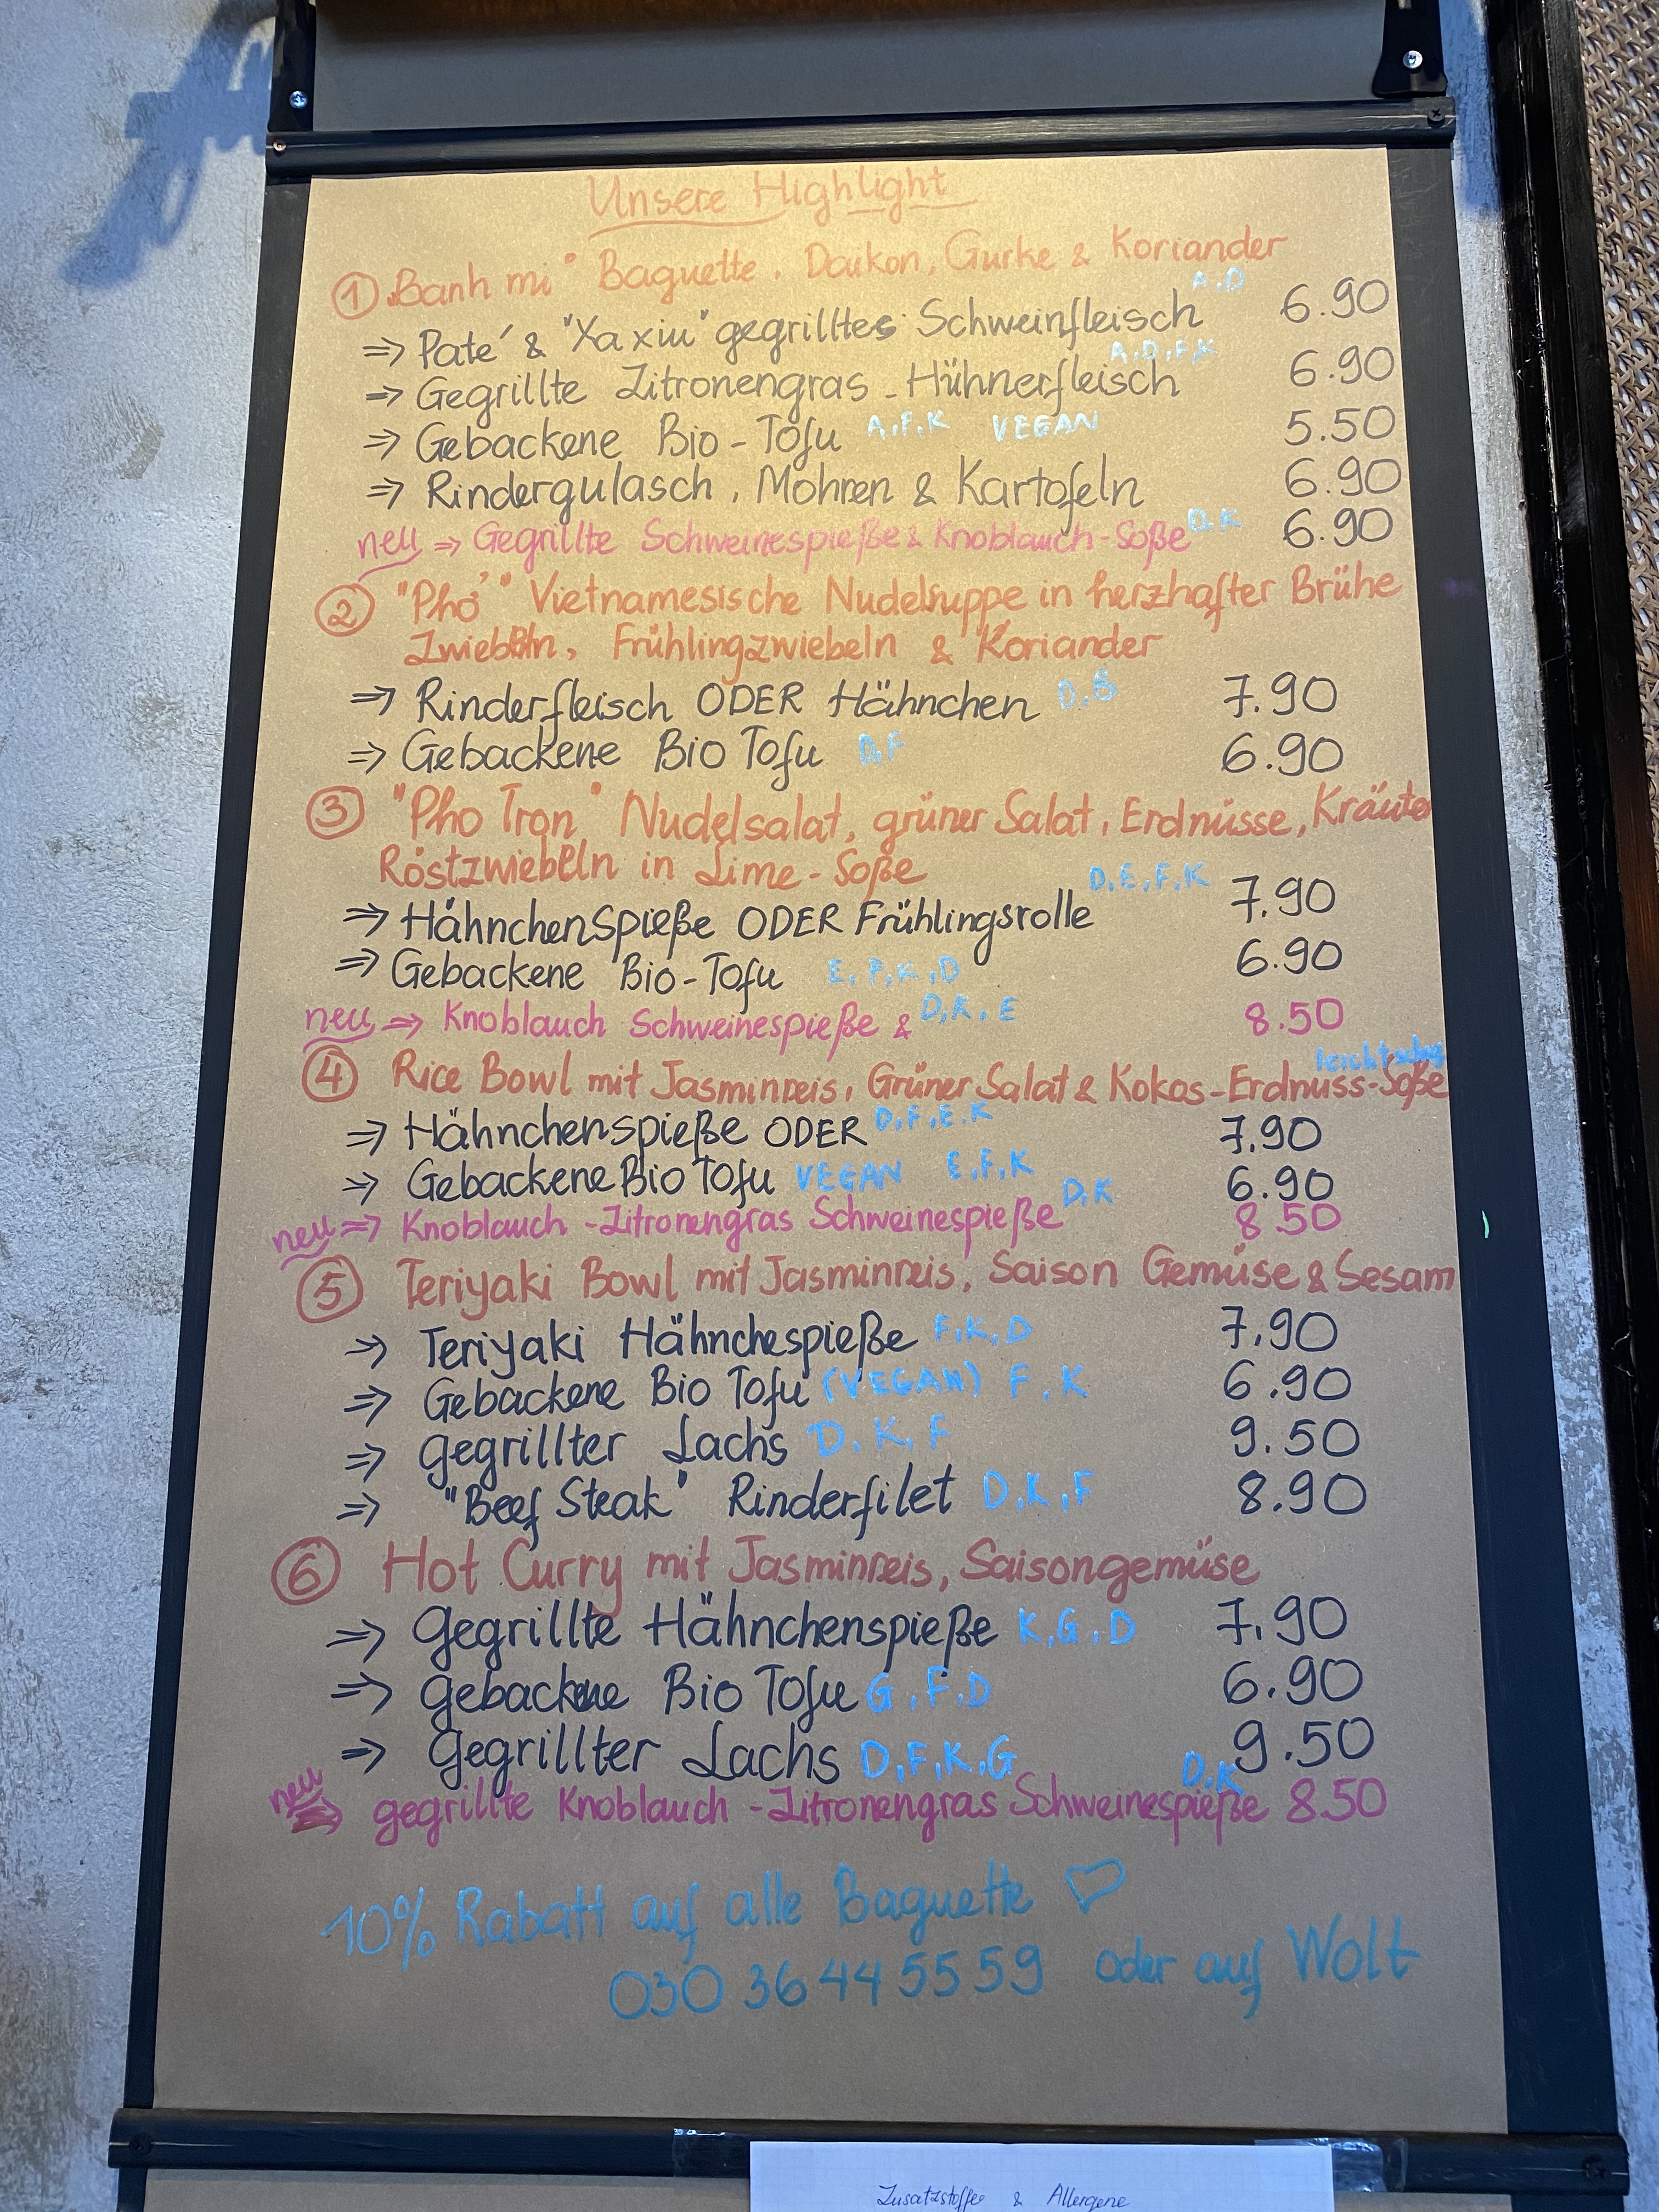 Unsere Highlight
① "Banh mi" Baguette, Daikon, Gurke & Koriander
A,D
⇒ Paté & "Xa xiu" gegrilltes Schweinfleisch 6.90
A,D,F,K
⇒ Gegrillte Zitronengras - Hühnerfleisch 6.90
⇒ Gebackene Bio-Tofu A,F,K VEGAN 5.50
⇒ Rindergulasch, Mohren & Kartofeln 6.90
neu ⇒ Gegrillte Schweinespieße & Knoblauch-Soße D,K 6.90
② "Pho" Vietnamesische Nudelsuppe in herzhafter Brühe
Zwiebeln, Frühlingzwiebeln & Koriander
⇒ Rinderfleisch ODER Hähnchen 7.90
⇒ Gebackene Bio Tofu D,F 6.90
③ "Pho Tron" Nudelsalat, grüner Salat, Erdnüsse, Kräuter
Röstzwiebeln in Lime-Soße
D,E,F,K
⇒ Hähnchenspieße ODER Frühlingsrolle 7.90
⇒ Gebackene Bio-Tofu E,F,K,D 6.90
neu ⇒ Knoblauch Schweinespieße & D,K,E 8.50
④ Rice Bowl mit Jasminreis, Grüner Salat & Kokos-Erdnuss-Soße
⇒ Hähnchenspieße ODER D,F,E,K 7.90
⇒ Gebackene Bio Tofu VEGAN E,F,K 6.90
neu ⇒ Knoblauch-Zitronengras Schweinespieße D,K 8.50
⑤ Teriyaki Bowl mit Jasminreis, Saison Gemüse & Sesam
⇒ Teriyaki Hähnchespieße F,K,D 7.90
⇒ Gebackene Bio Tofu (VEGAN) F,K 6.90
⇒ gegrillter Lachs D,K,F 9.50
⇒ "Beef Steak" Rinderfilet D,K,F 8.90
⑥ Hot Curry mit Jasminreis, Saisongemüse
⇒ gegrillte Hähnchenspieße K,G,D 7.90
⇒ gebackene Bio Tofu G,F,D 6.90
⇒ gegrillter Lachs D,F,K,G 9.50
D,K
neu ⇒ gegrillte Knoblauch-Zitronengras Schweinespieße 8.50
10% Rabatt auf alle Baguette ♡
030 36 44 55 59 oder auf Wolt
Zusatzstoffee & Allergene